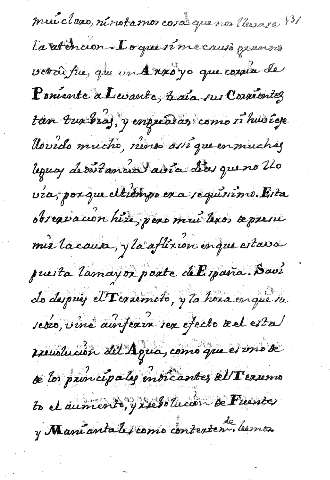 mui claro, ni notamos cosa que nos llevase 131
la atencion. Lo que si me causó gran no
vedad fue, que un Arroyo que corria de
Poniente a Levante, traía sus Corrientes
tan turbias, y en predran como si huviese
llovido mucho, siendo assi que en muchas
leguas de distancia havia dias que no llo
via, por que el tiempo era sequisimo. Esta
observación hize, pero mui lexos de presu
mir la causa, y la aflixion en que estava
puesta la mayor parte de España. Savi
do despues el Terremoto, y la hora en que su
cedio, vine a inferir ser efecto de el esta
revolución del Agua, como que es uno de
de los principales indicantes del Terremo
to el aumento, y revolución de Fuentes
y Manantales como contextem. de. leemos